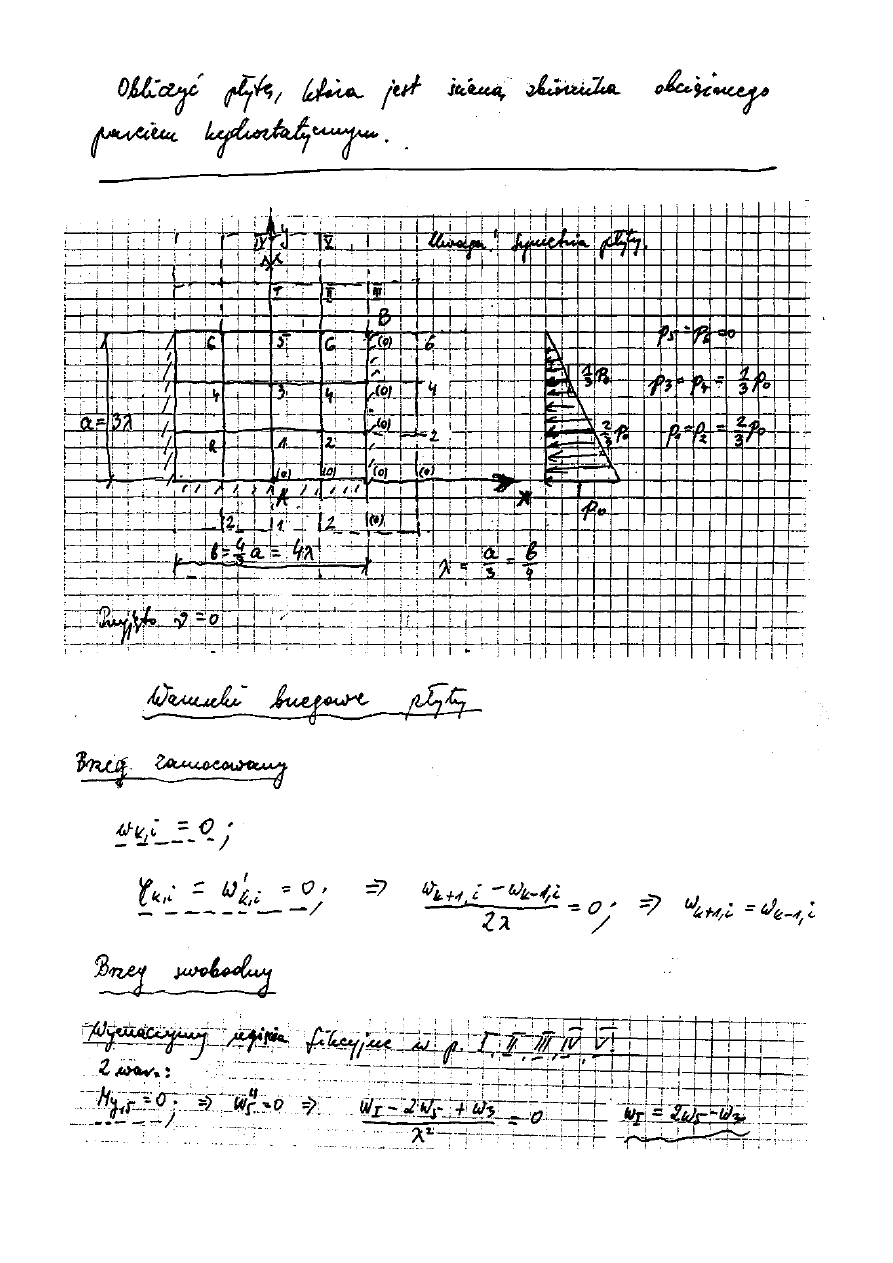 Obliczyć płytę, która jest ścianą zbiornika obciążonego
parciem hydrostatycznym.
Uwaga! Symetria płyty.
IV y V
I II III
B
6 5 6 (0) 6
4 3 4 (0) 4
2 1 2 (0) 2
(0) (0) (0) (0)
A x
2 1 2 (0)
a = 3λ
b = 4/3 a = 4λ
1/3 p₀
2/3 p₀
p₀
p₅ = p₆ = 0
p₃ = p₄ = 1/3 p₀
p₁ = p₂ = 2/3 p₀
λ = a/3 = b/4
Przyjęto ν = 0
Warunki brzegowe płyty
Brzeg zamocowany
w_{k,i} = 0;
φ_{k,i} = w'_{k,i} = 0; ⇒ (w_{k+1,i} − w_{k−1,i})/2λ = 0; ⇒ w_{k+1,i} = w_{k−1,i}
Brzeg swobodny
Wyznaczymy ugięcia fikcyjne w p. I, II, III, IV, V.
2 war.:
M_{y,5} = 0; ⇒ w₅'' = 0 ⇒ (w_I − 2w₅ + w₃)/λ² = 0 w_I = 2w₅ − w₃